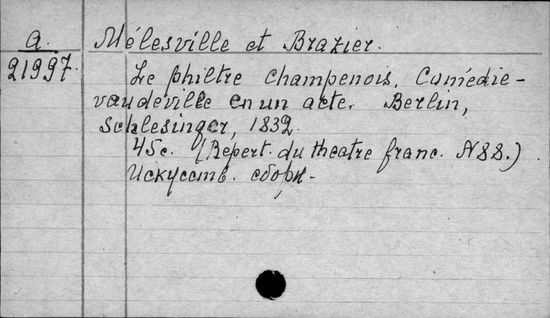 a.
21997.
Mélesville et Brazier.
Le philtre champenois. Comédie-
vaudeville en un acte. Berlin,
Schlesinger, 1832.
45c. (Repert. du theatre franc. N88.)
Искусств. сборн.